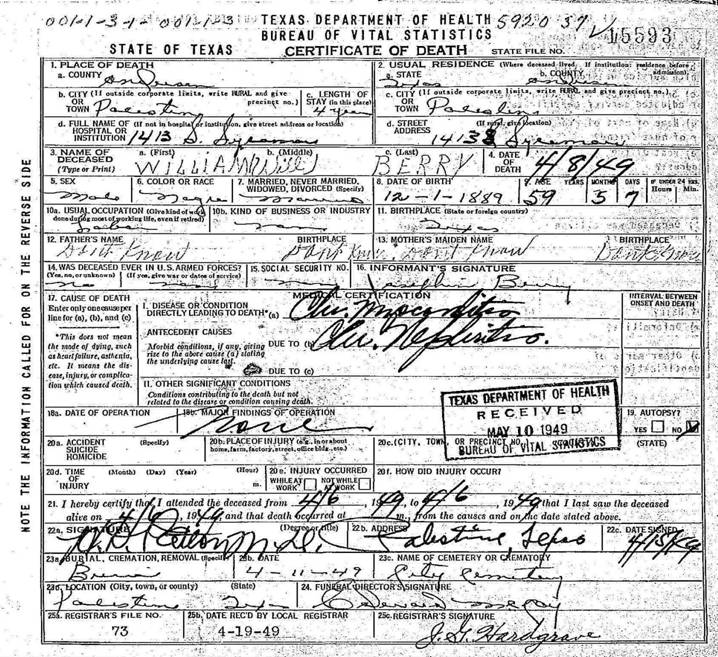 001-1-3-1- 001-1-3 TEXAS DEPARTMENT OF HEALTH 5920 37
BUREAU OF VITAL STATISTICS 15593
STATE OF TEXAS CERTIFICATE OF DEATH STATE FILE NO.
1. PLACE OF DEATH
a. COUNTY Anderson
2. USUAL RESIDENCE (Where deceased lived. If institution: residence before admission)
a. STATE Texas b. COUNTY Anderson
b. CITY (If outside corporate limits, write RURAL and give precinct no.)
OR TOWN Palestine
c. LENGTH OF STAY (in this place)
4 years
c. CITY (If outside corporate limits, write RURAL and give precinct no.)
OR TOWN Palestine
d. FULL NAME OF (If not in hospital or institution, give street address or location)
HOSPITAL OR INSTITUTION 1413 S Sycamore
d. STREET ADDRESS (If rural, give location)
1413 S Sycamore
3. NAME OF DECEASED (Type or Print)
a. (First) b. (Middle) c. (Last)
WILLIAM BERRY
4. DATE OF DEATH 4/8/49
5. SEX
Male
6. COLOR OR RACE
Negro
7. MARRIED, NEVER MARRIED, WIDOWED, DIVORCED (Specify)
Married
8. DATE OF BIRTH
12-1-1889
9. AGE YEARS MONTHS DAYS IF UNDER 24 HRS. Hours Min.
59 5 7
10a. USUAL OCCUPATION (Give kind of work done during most of working life, even if retired)
Labor
10b. KIND OF BUSINESS OR INDUSTRY
11. BIRTHPLACE (State or foreign country)
Texas
12. FATHER'S NAME BIRTHPLACE
Don't Know Don't Know
13. MOTHER'S MAIDEN NAME BIRTHPLACE
Don't Know Don't Know
14. WAS DECEASED EVER IN U.S. ARMED FORCES?
(Yes, no, or unknown) (If yes, give war or dates of service)
no
15. SOCIAL SECURITY NO.
16. INFORMANT'S SIGNATURE
Berry
17. CAUSE OF DEATH
Enter only one cause per line for (a), (b), and (c)
*This does not mean the mode of dying, such as heart failure, asthenia, etc. It means the disease, injury, or complication which caused death.
MEDICAL CERTIFICATION
I. DISEASE OR CONDITION DIRECTLY LEADING TO DEATH* (a) Chr. Myocarditis
ANTECEDENT CAUSES
Morbid conditions, if any, giving rise to the above cause (a) stating the underlying cause last.
DUE TO (b) Chr. Nephritis.
DUE TO (c)
II. OTHER SIGNIFICANT CONDITIONS
Conditions contributing to the death but not related to the disease or condition causing death.
INTERVAL BETWEEN ONSET AND DEATH
18a. DATE OF OPERATION
18b. MAJOR FINDINGS OF OPERATION
None
TEXAS DEPARTMENT OF HEALTH
RECEIVED
MAY 10 1949
BUREAU OF VITAL STATISTICS
19. AUTOPSY?
YES NO
20a. ACCIDENT SUICIDE HOMICIDE (Specify)
20b. PLACE OF INJURY (e.g., in or about home, farm, factory, street, office bldg., etc.)
20c. (CITY, TOWN, OR PRECINCT NO.) (STATE)
20d. TIME OF INJURY (Month) (Day) (Year) (Hour) m.
20e. INJURY OCCURRED
WHILE AT WORK NOT WHILE AT WORK
20f. HOW DID INJURY OCCUR?
21. I hereby certify that I attended the deceased from 4/6, 1949 to 4/6, 1949 that I last saw the deceased
alive on 4/6 1949 and that death occurred at m., from the causes and on the date stated above.
22a. SIGNATURE (Degree or title)
M.D.
22b. ADDRESS
Palestine, Texas
22c. DATE SIGNED
4/15/49
23a. BURIAL, CREMATION, REMOVAL (Specify)
23b. DATE
4-11-49
23c. NAME OF CEMETERY OR CREMATORY
City Cemetery
23d. LOCATION (City, town, or county) (State)
Palestine Texas
24. FUNERAL DIRECTOR'S SIGNATURE
25a. REGISTRAR'S FILE NO.
73
25b. DATE REC'D BY LOCAL REGISTRAR
4-19-49
25c. REGISTRAR'S SIGNATURE
J. G. Hardgrave
NOTE THE INFORMATION CALLED FOR ON THE REVERSE SIDE